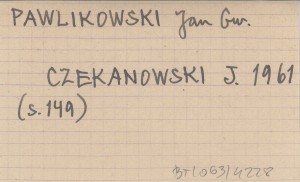 PAWLIKOWSKI Jan Gw.
CZEKANOWSKI J. 1961
(s. 149)
BT/063/4228